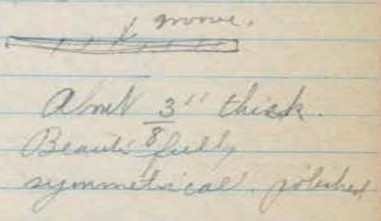 groove.
About 3/8" thick.
Beautifully
symmetrical. polished